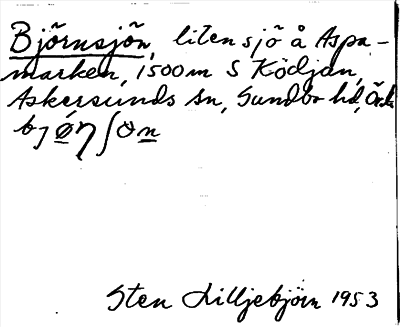 Björnsjön, liten sjö å Aspa-
marken, 1500 m S Ködjan,
Askersunds sn, Sundbo hd, Ör
Sten Lilljebjörn 1953